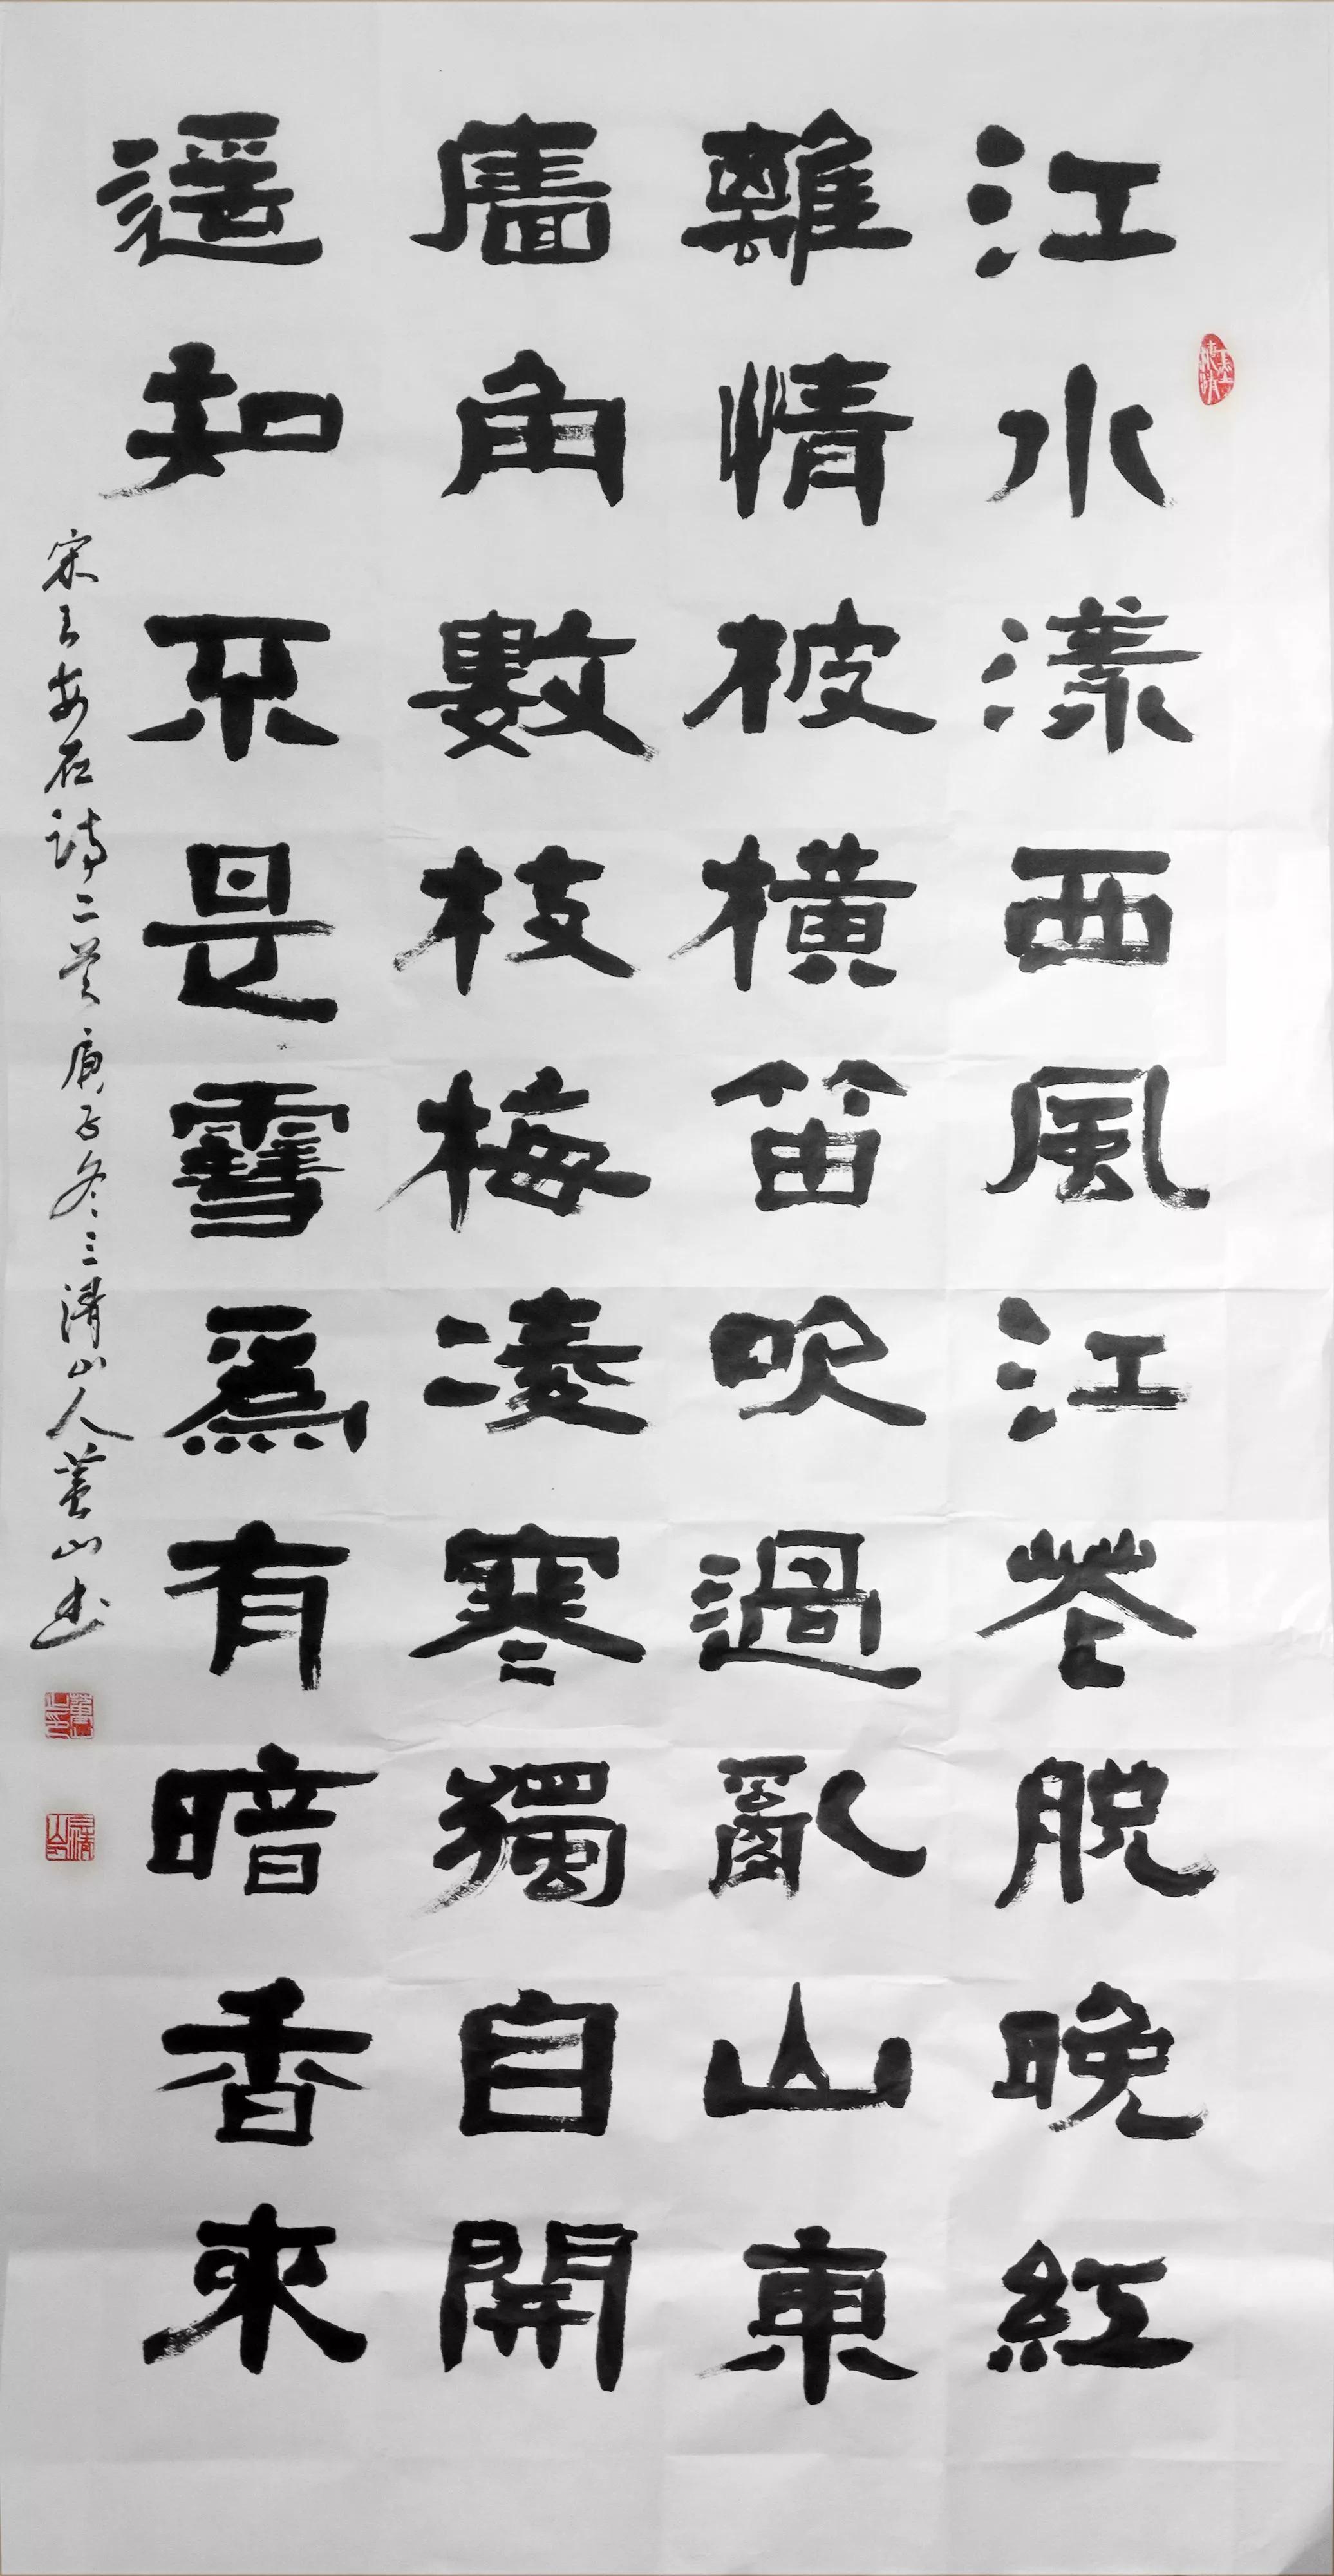 江水漾西風江花脫晚紅
離情被橫笛吹過亂山東
牆角數枝梅凌寒獨自開
遥知不是雪爲有暗香來
宋王安石詩二首庚子冬三清山人董山书